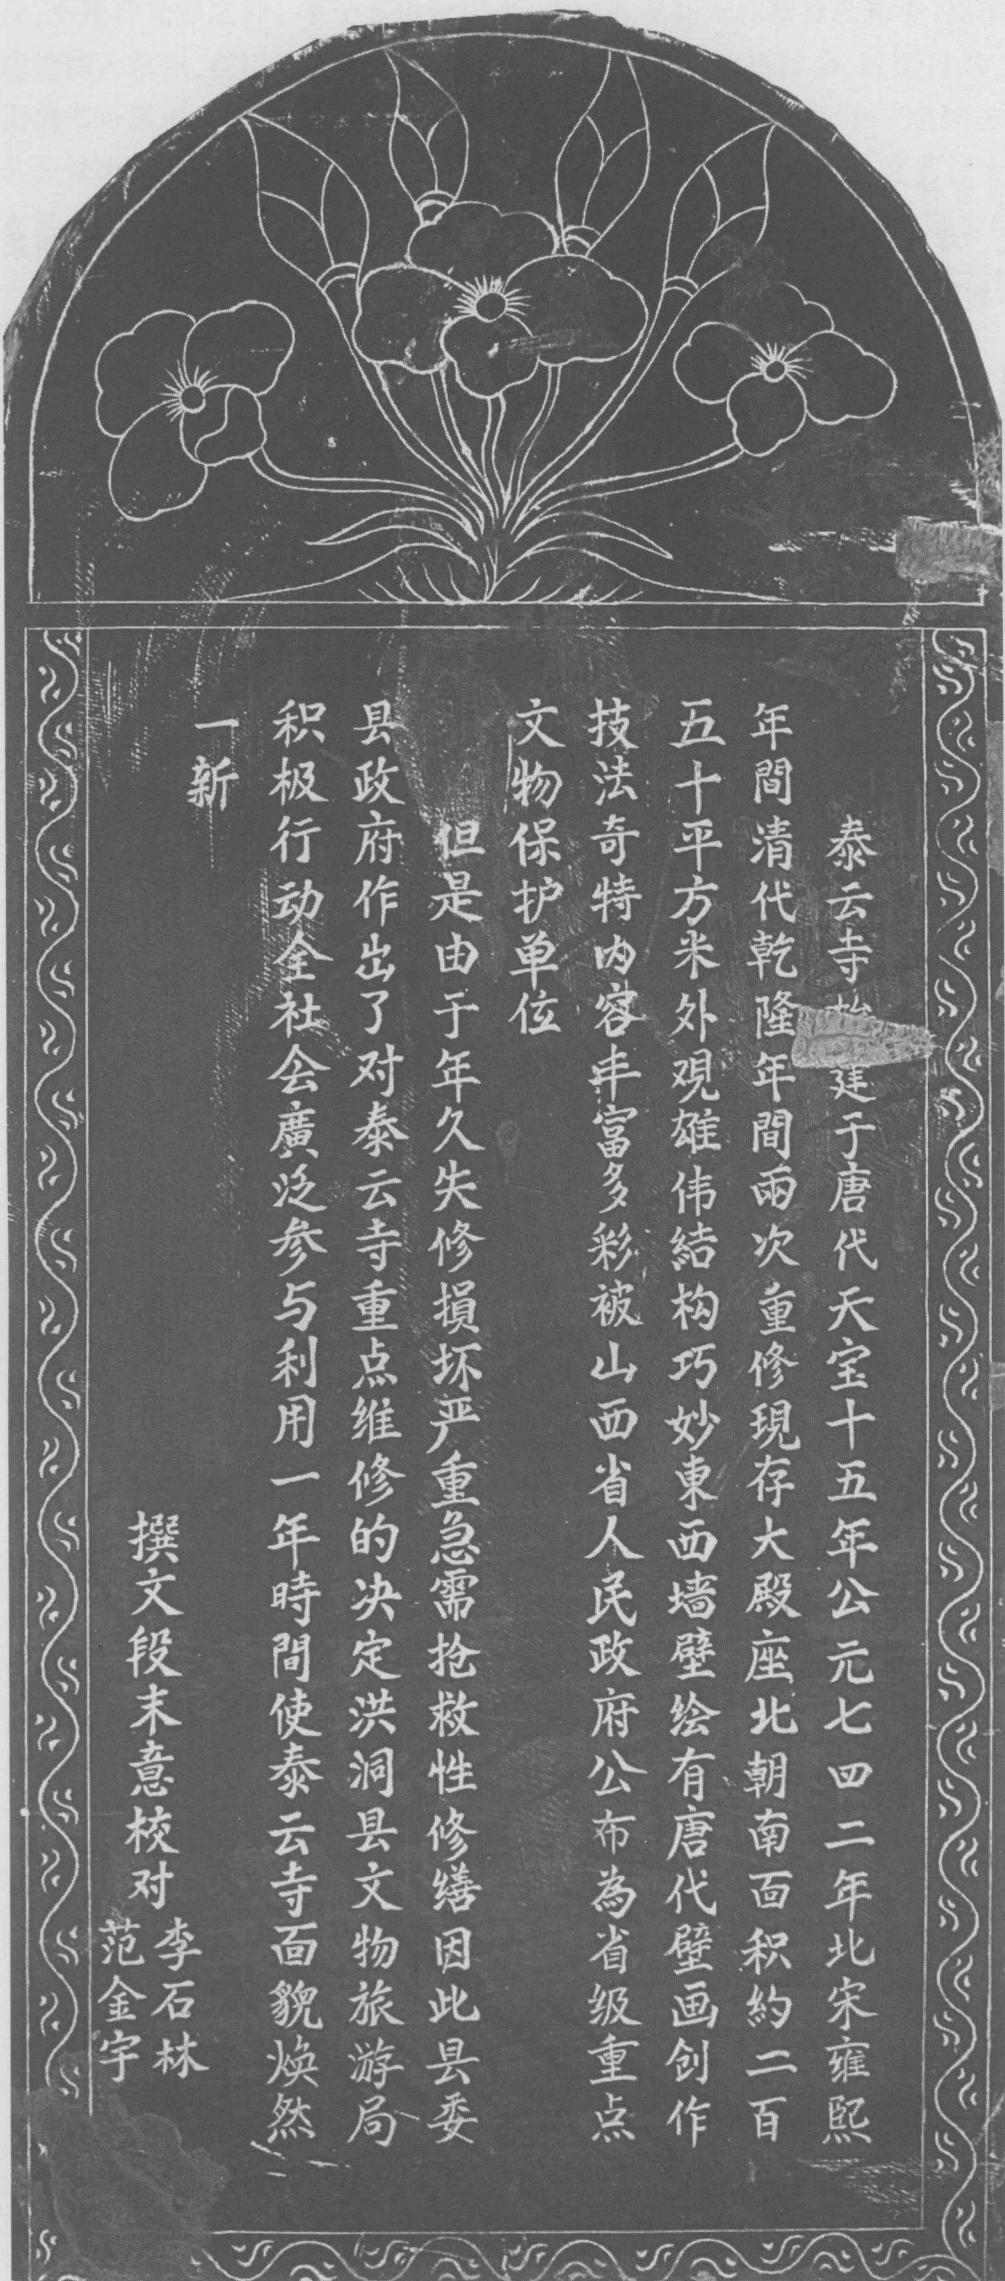 泰云寺始建于唐代天宝十五年公元七四二年北宋雍熙
年間清代乾隆年間兩次重修現存大殿座北朝南面积約二百
五十平方米外观雄伟結构巧妙東西墙壁绘有唐代壁画创作
技法奇特内容丰富多彩被山西省人民政府公布為省级重点
文物保护单位
但是由于年久失修損坏严重急需抢救性修缮因此县委
县政府作出了对泰云寺重点维修的决定洪洞县文物旅游局
积极行动全社会廣泛参与利用一年時間使泰云寺面貌焕然
一新
撰文段末意校对李石林
范金宇